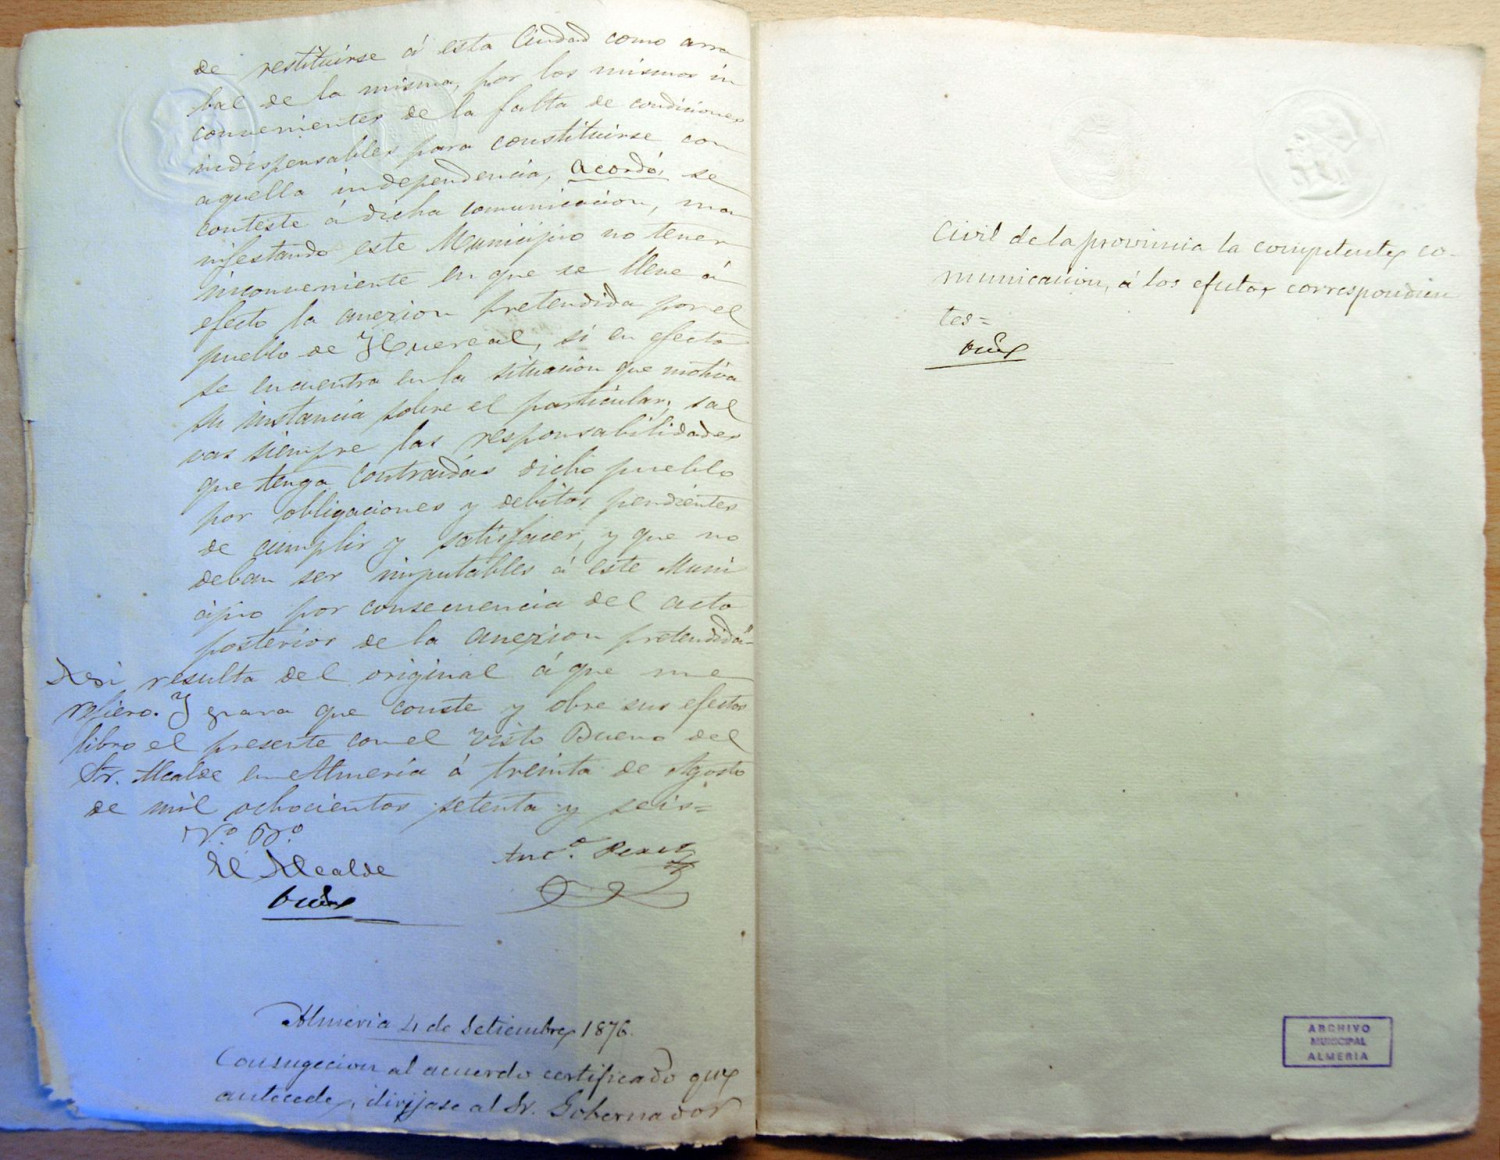 de restituirse á esta Ciudad como arra
bal de la misma, por los mismos in
convenientes de la falta de condiciones
indispensables para constituirse con
aquella independencia, acordó, se
conteste á dicha comunicacion, ma
nifestando este Municipio no tener
inconveniente en que se lleve á
efecto la anexion pretendida por el
pueblo de Huercal, si en efecto
se encuentra en la situacion que motiva
su instancia sobre el particular; sal
vas siempre las responsabilidades
que tenga contraidas dicho pueblo
por obligaciones y debitos pendientes
de cumplir y satisfacer, y que no
deban ser imputables á este Muni
cipio por consecuencia del acto
posterior de la anexion pretendida=
Asi resulta del original á que me
refiero. Y para que conste y obre sus efectos
libro el presente con el Visto Bueno del
Sr. Alcalde en Almeria á treinta de Agosto
de mil ochocientos setenta y seis=
Vº. Bº.
El Alcalde
Almeria 4 de Setiembre 1876.
Con sugecion al acuerdo certificado que
antecede, dirijase al Sr. Gobernador
Civil de la provincia la competente co-
municacion, á los efectos correspondien
tes=
ARCHIVO
MUNICIPAL
ALMERIA